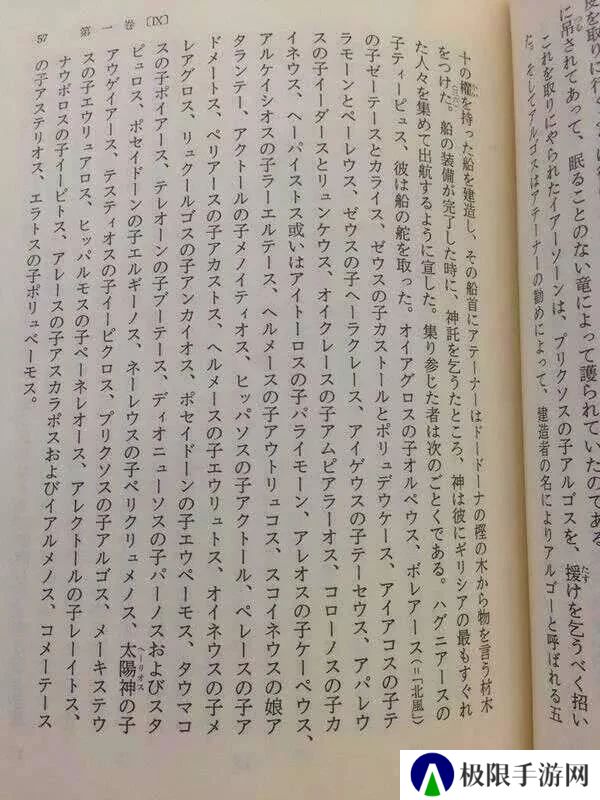 に吊されてあって、眠ることのない竜によって護られていたのである
これを取りにやられたイアーソーンは、プリクソスの子アルゴスを、援けを乞うべく招い
た。そしてアルゴスはアテーナーの勧めによって、建造者の名によりアルゴーと呼ばれる五
57 第一巻〔IX〕
十の櫂を持った船を建造し、その船首にアテーナーはドードーナの樫の木から物を言う材木
をつけた。船の装備が完了した時に、神託を乞うたところ、神は彼にギリシアの最もすぐれ
た人々を集めて出航するように宣した。集り参じた者は次のごとくである。ハグニアースの
子ティーピュス、彼は船の舵を取った。オイアグロスの子オルペウス、ボレアース(=「北風」)
の子ゼーテースとカライス、ゼウスの子カストールとポリュデウケース、アイアコスの子テ
ラモーンとペーレウス、ゼウスの子ヘーラクレース、アイゲウスの子テーセウス、アパレウ
スの子イーダースとリュンケウス、オイクレースの子アムピアラーオス、コローノスの子カ
イネウス、ヘーパイストス或いはアイトーロスの子パライモーン、アレオスの子ケーペウス、
アルケイシオスの子ラーエルテース、ヘルメースの子アウトリュコス、スコイネウスの娘ア
タランテー、アクトールの子メノイティオス、ヒッパソスの子アクトール、ペレースの子ア
ドメートス、ペリアースの子アカストス、ヘルメースの子エウリュトス、オイネウスの子メ
レアグロス、リュクールゴスの子アンカイオス、ポセイドーンの子エウペーモス、タウマコ
スの子ポイアース、テレオーンの子ブーテース、ディオニューソスの子パーノスおよびスタ
ピュロス、ポセイドーンの子エルギーノス、ネーレウスの子ペリクリュメノス、太陽神の子
アウゲイアース、テスティオスの子イーピクロス、プリクソスの子アルゴス、メーキステウ
スの子エウリュアロス、ヒッパルモスの子ペーネレオース、アレクトールの子レーイトス、
ナウボロスの子イーピトス、アレースの子アスカラポスおよびイアルメノス、コメーテース
の子アステリオス、エラトスの子ポリュペーモス。
極限手游网